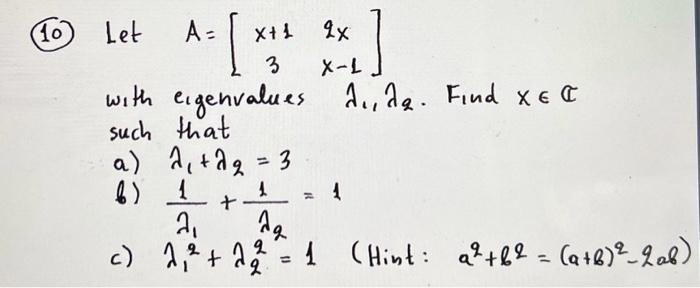 (10) Let A = [ x+1 2x
3 x-1 ]
with eigenvalues λ₁, λ₂. Find x ∈ ℂ
such that
a) λ₁ + λ₂ = 3
b) 1/λ₁ + 1/λ₂ = 1
c) λ₁² + λ₂² = 1 (Hint: a² + b² = (a+b)² - 2ab)